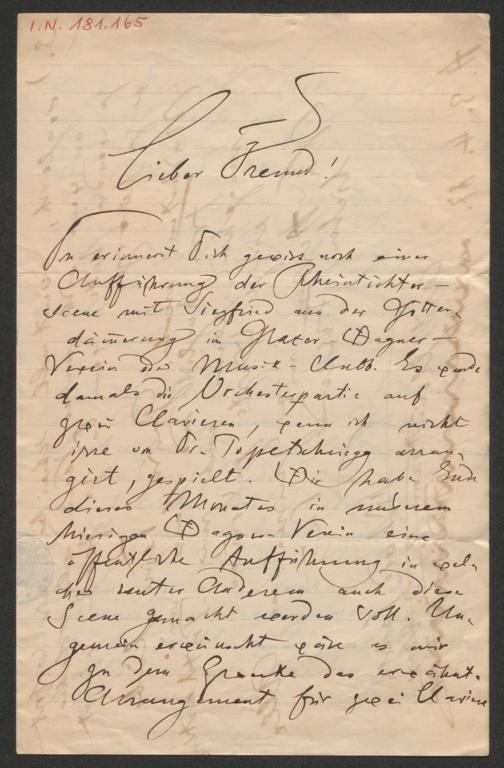 I.N. 181.165
Lieber Freund!
Du erinnerst Dich gewiss noch einer
Aufführung der Rheintöchter-
scene mit Siegfried aus der Götter-
dämmerung im Grazer-Wagner-
Verein oder Musik-Clubb. Es wurde
damals die Orchesterpartie auf
zwei Clavieren, wenn ich nicht
irre von Dr. arran-
girt, gespielt. Wir haben Ende
dieses Monates in unserem
hiesigen Wagner Verein eine
öffentliche Aufführung in wel-
cher unter Anderem auch diese
Scene gemacht werden soll. Un-
gemein erwünscht wäre es mir
zu dem Zwecke das erwähnte
Arrangement für zwei Claviere